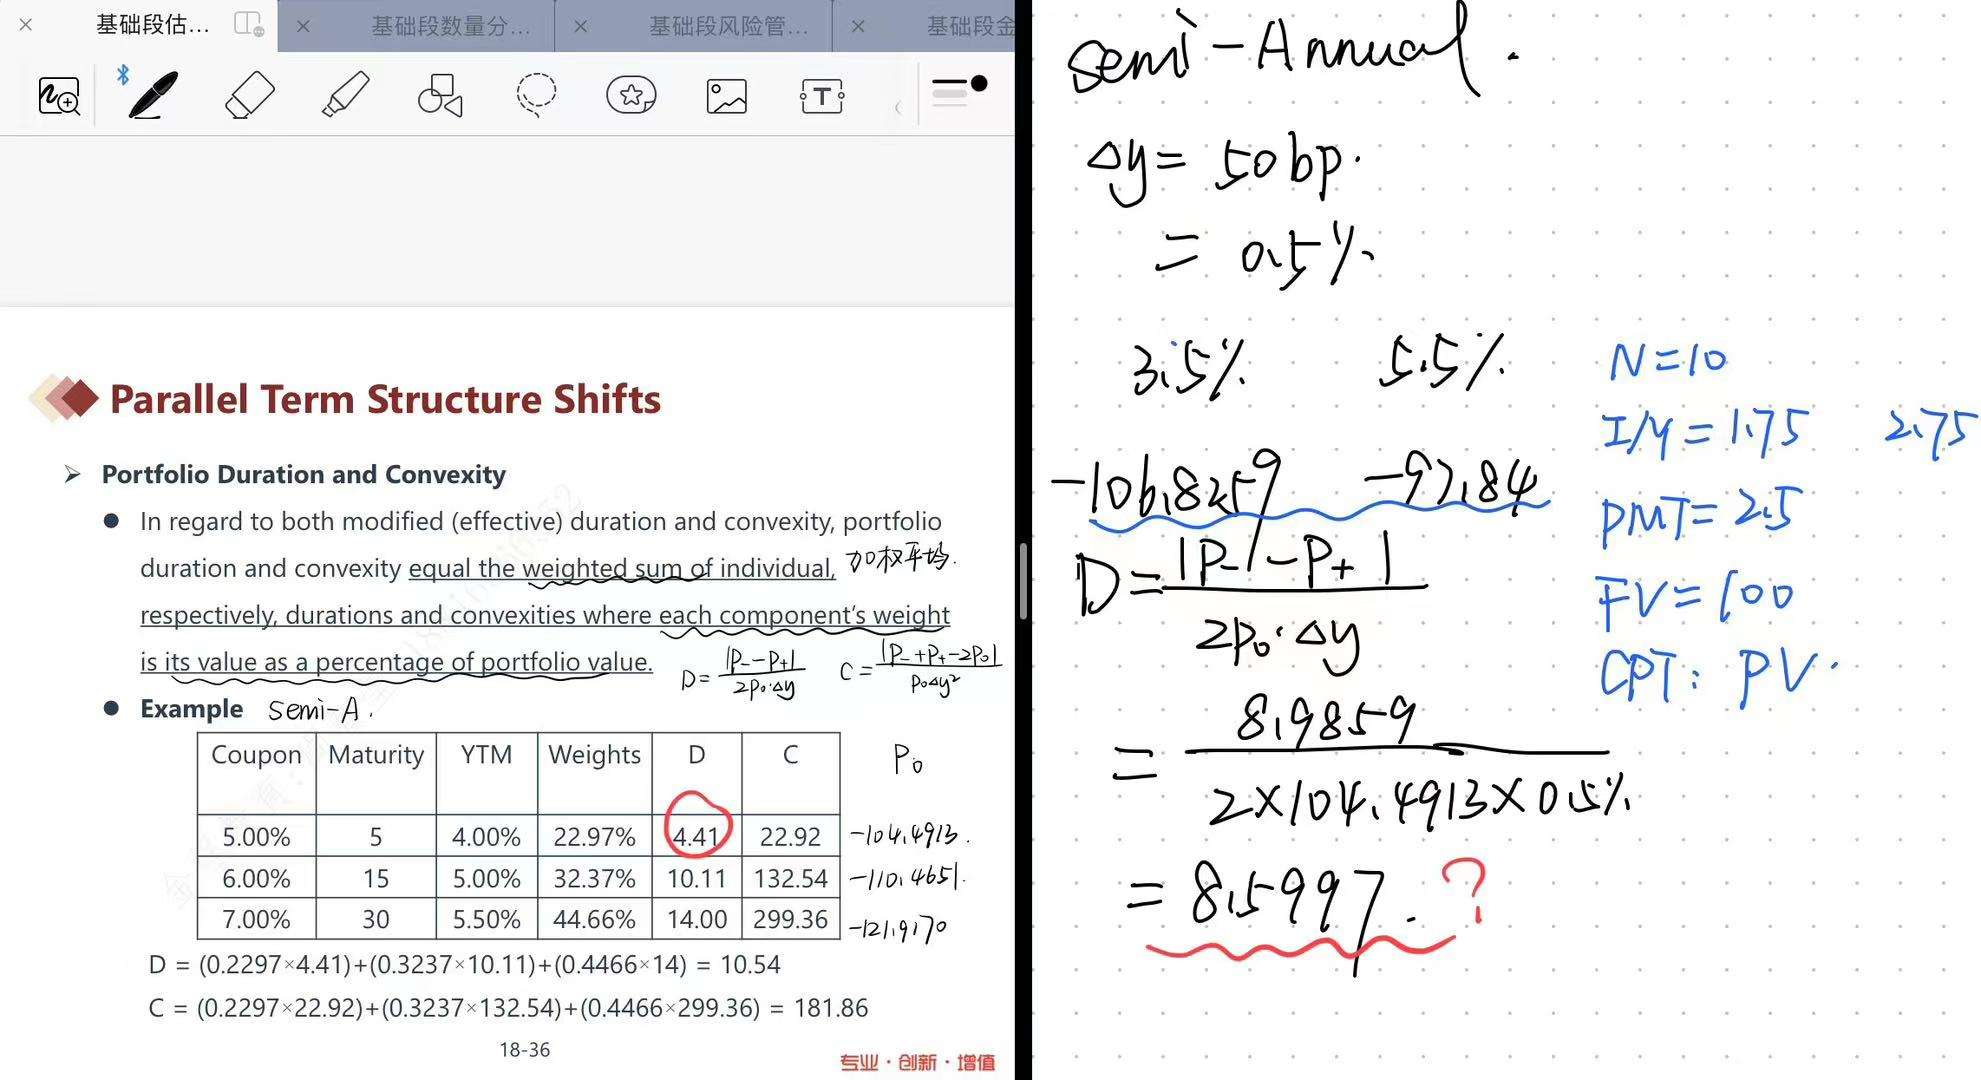 基础段估...
基础段数量分...
基础段风险管...
基础段金
Parallel Term Structure Shifts
Portfolio Duration and Convexity
In regard to both modified (effective) duration and convexity, portfolio
duration and convexity equal the weighted sum of individual, 加权平均.
respectively, durations and convexities where each component's weight
is its value as a percentage of portfolio value. D = |P- - P+| / 2P0·Δy C = |P- + P+ - 2P0| / P0Δy²
Example Semi-A.
Coupon Maturity YTM Weights D C P0
5.00% 5 4.00% 22.97% 4.41 22.92 -104.4913.
6.00% 15 5.00% 32.37% 10.11 132.54 -110.4651.
7.00% 30 5.50% 44.66% 14.00 299.36 -121.9170
D = (0.2297×4.41)+(0.3237×10.11)+(0.4466×14) = 10.54
C = (0.2297×22.92)+(0.3237×132.54)+(0.4466×299.36) = 181.86
18-36
专业·创新·增值
Semi-Annual.
Δy = 50bp.
= 0.5%.
3.5% 5.5%
-106.8259 -97.84
D = |P- - P+| / 2P0·Δy
= 8.9859 / 2×104.4913×0.5%
= 8.5997. ?
N=10
I/Y=1.75 2.75
PMT=2.5
FV=100
CPT: PV.